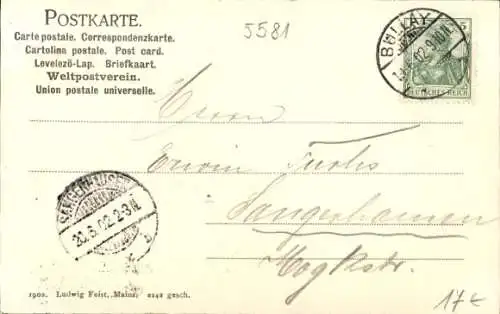 POSTKARTE.
Carte postale. Correspondenzkarte.
Cartolina postale. Post card.
Levelező-Lap. Briefkaart.
Weltpostverein.
Union postale universelle.
5581
6.02.9-10V.
DEUTSCHES REICH
Herrn
Erwin Fuchs
Sangerhausen
SANGERHAUSEN
20.6.02.2-3N.
1902. Ludwig Feist, Mainz. 2242 gesch.
17€